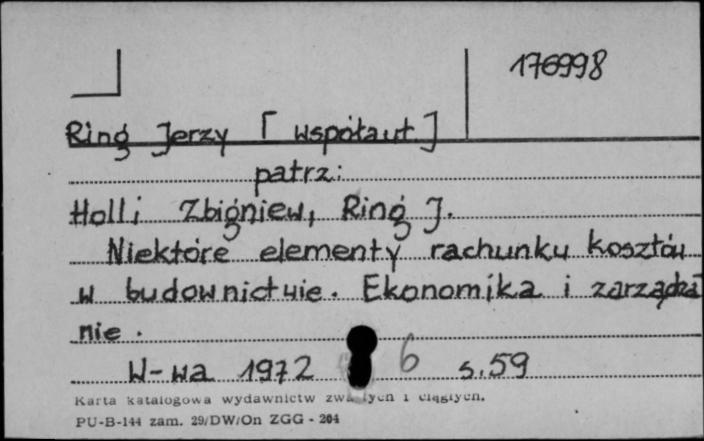 176998
Ring Jerzy [ współaut. ]
patrz:
Holli Zbigniew, Ring J.
Niektóre elementy rachunku kosztów
w budownictwie. Ekonomika i zarządza
nie.
W-wa 1972 6 s. 59
Karta katalogowa wydawnictw i ciągłych.
PU-B-144 zam. 29/DW/On ZGG - 204